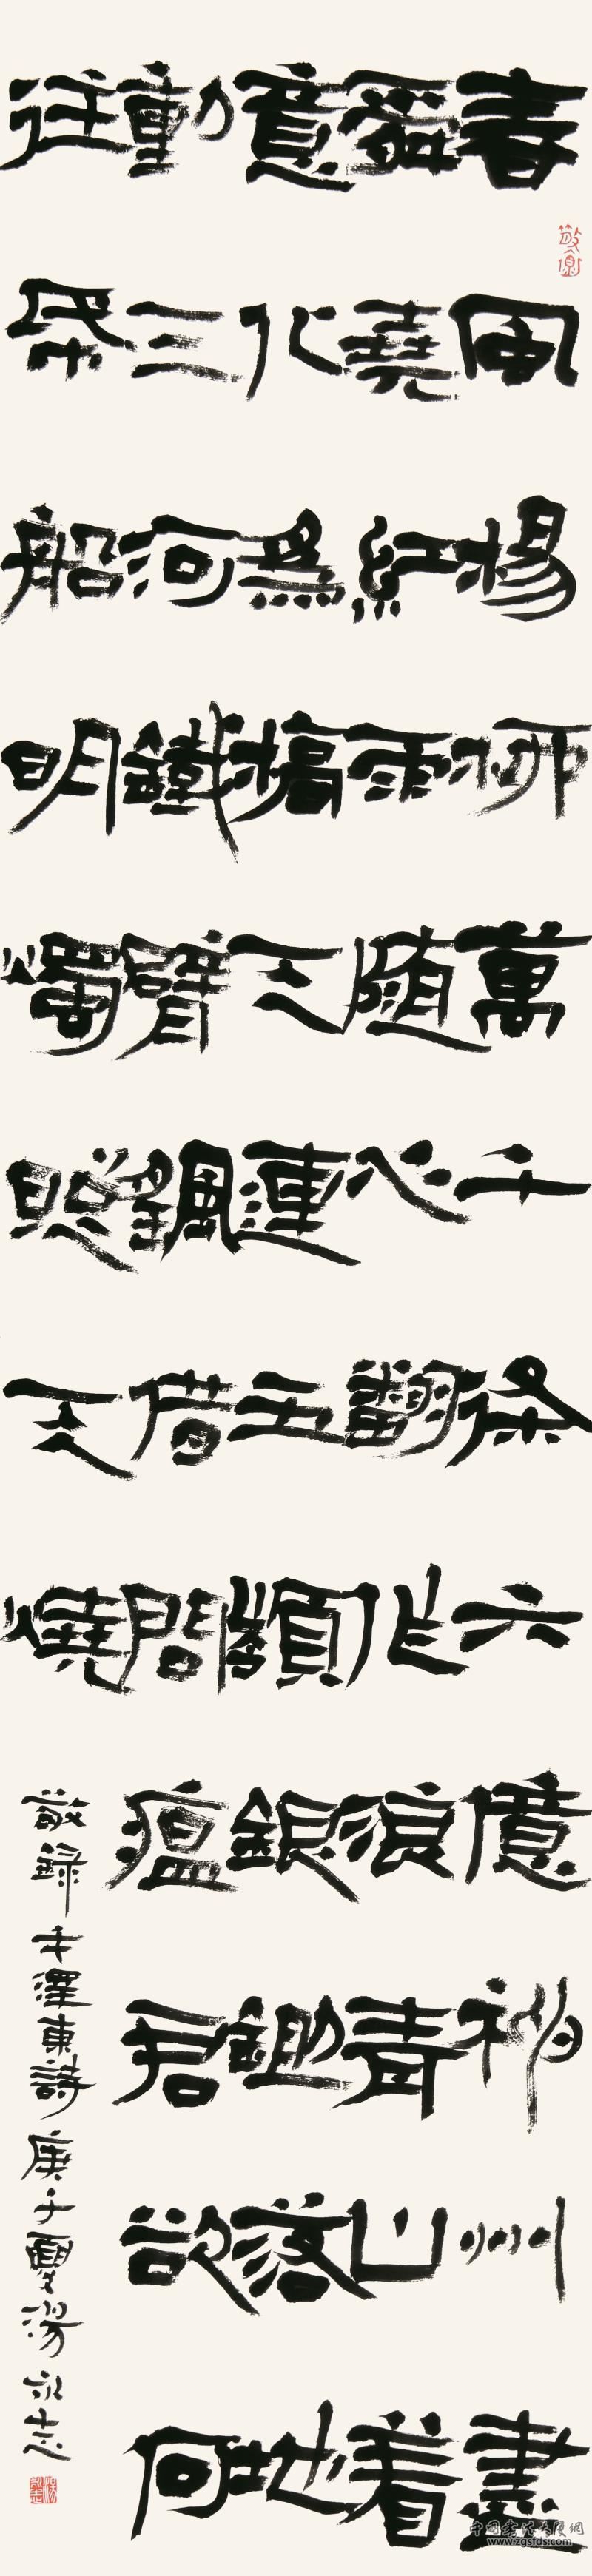 春風楊柳萬千條六億神州盡
舜堯紅雨随心翻作浪青山着
意化為橋天連五嶺銀鋤落地
動三河鐵臂颻借問瘟君欲何
往帋船明燭照天燒
敬録毛澤東詩庚子夏湯永志
www.zgsfds.com